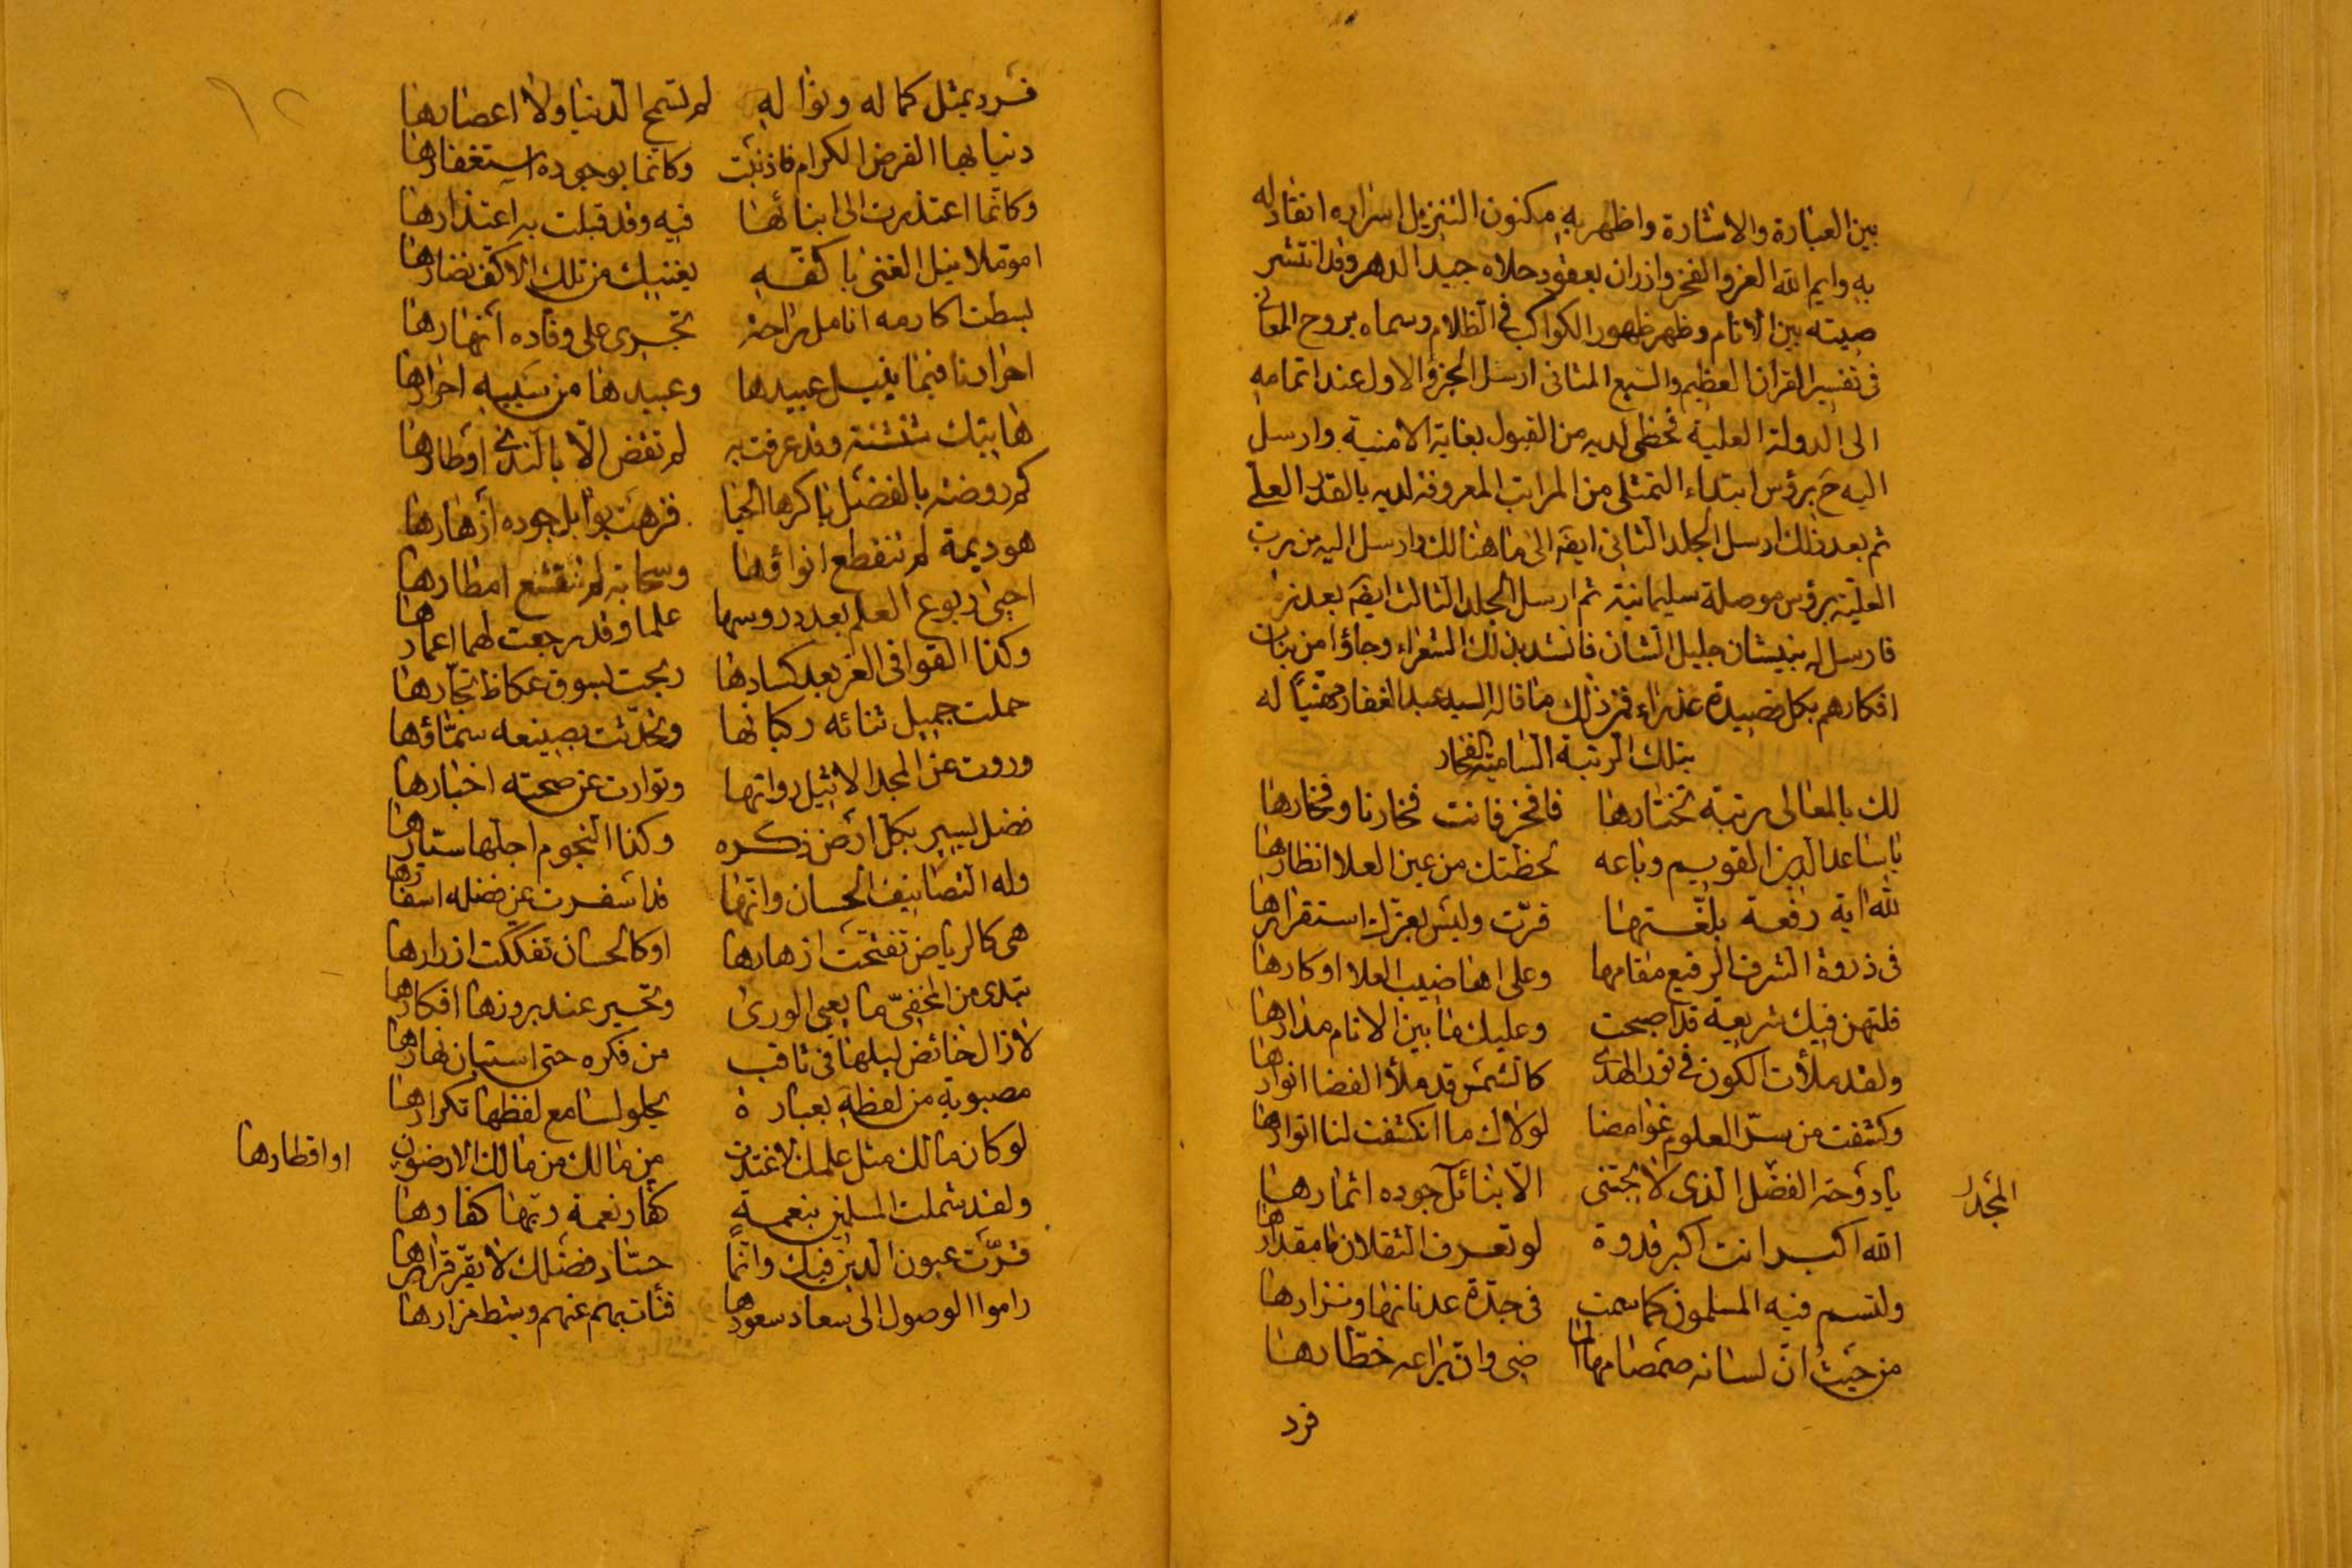 بين العبارة والاشارة واظهر به مكنون التنزيل اسراره انقاد له
به وايم الله العز والفخر وازدان بعقود حلاه جيد الدهر وقد انتشر
صيته بين الانام وظهر ظهور الكواكب في الظلام وسماه بروح المعاني
في تفسير القران العظيم والسبع المثاني ارسل الجزؤ الاول عند اتمامه
الى الدولة العلية فحظى لديه من القبول بغاية الامنية وارسل
اليه ح برؤس ابتداء التمثلى من المراتب المعروفة لديه بالقدر العلى
ثم بعد ذلك ارسل الجلد الثاني ايضا الى ما هنالك وارسل اليه من برب
العلية برؤس موصلة سليمانية ثم ارسل الجلد الثالث ايضا بعد
فارسل له بنيشان جليل الشان فانشد بذلك الشعراء وجاؤا من بنات
افكارهم بكل قصيدة عذراء فمن ذلك ما قاله السيد عبد الغفار مهنيا له
بتلك الرتبة السامية الفخار
لك بالمعالى رتبة تختارها فافخر فانت فخارنا وفخارها
يا ساعد الدين القويم وباعه لحظتك من عين العلا انظارها
لله اية رفعة بلغتها قرت وليس بغيرك استقرارها
في ذروة الشرف الرفيع مقامها وعلى اهاضيب العلا اوكارها
فلتهن فيك شريعة قد اصبحت وعليك ما بين الانام مدارها
ولقد ملأت الكون في نور الهدى كالشمس قد ملأ الفضا انوارها
وكشفت من سر العلوم غوامضا لولاك ما انكشفت لنا انوارها
يا دوحة الفضل الذى لا يجتنى الا بنائل جوده اثمارها
المجد
الله اكبر انت اكبر قدوة لو تعرف الثقلان ما مقدارها
ولتسم فيه المسلمون كما سمت في جدة عدنانها ونزارها
من حيث ان لسانه صمصامها الماضى وان يراعه خطارها
فرد
فرد بمثل كماله ونواله لم تسمح الدنيا ولا اعصارها
دنيا بها انقرض الكرام فاذنبت وكانما بوجوده استغفارها
وكانما اعتذرت الى ابنائها فيه وقد قبلت به اعتذارها
امؤملا نيل الغنى باكفه يغنيك من تلك الاكف نضارها
بسطت مكارمه انامل راحة تجرى على وفاده انهارها
احرارنا فيما ينيل عبيدها وعبيدها من سيبه احرارها
هاتيك شنشنة وقد عرفت به لم تقض الا بالندى اوطارها
كم روضة بالفضل باكرها الحيا فزهت بوابل جوده ازهارها
هو ديمة لم تنقطع انواؤها وسحابة لم تنقشع امطارها
احيى ربوع العلم بعد دروسها علما وقد رجعت لها اعمارها
وكذا القوافي الغر بعد كسادها ربحت بسوق عكاظ تجارها
حملت جميل ثنائه ركبانها وتحدثت بصنيعه سماؤها
وروت عن المجد الاثيل رواتها وتواترت عن صحته اخبارها
فضل يسير بكل ارض ذكره وكذا النجوم اجلها سيارها
وله التصانيف الحسان وانها قد اسفرت عن فضله اسفارها
هي كالرياض تفتحت ازهارها او كالحسان تفككت ازرارها
تبدى من المخفى ما يعيى الورى وتحير عند بروزها افكارها
لا زال خائض ليلها في ثاقب من فكره حتى استبان نهارها
مصبوبة من لفظه بعبارة يحلو لسامع لفظها تكرارها
لو كان مالك مثل علمك لاغتدت من مالك من مالك الارضون
او اقطارها
ولقد شملت المسلمين بنعمة كفار نعمة ربها كفارها
قرت عيون الدين فيك وانما حساد فضلك لا يقر قرارها
راموا الوصول الى سعاد سعودها فنأت بهم عنهم وشط مزارها